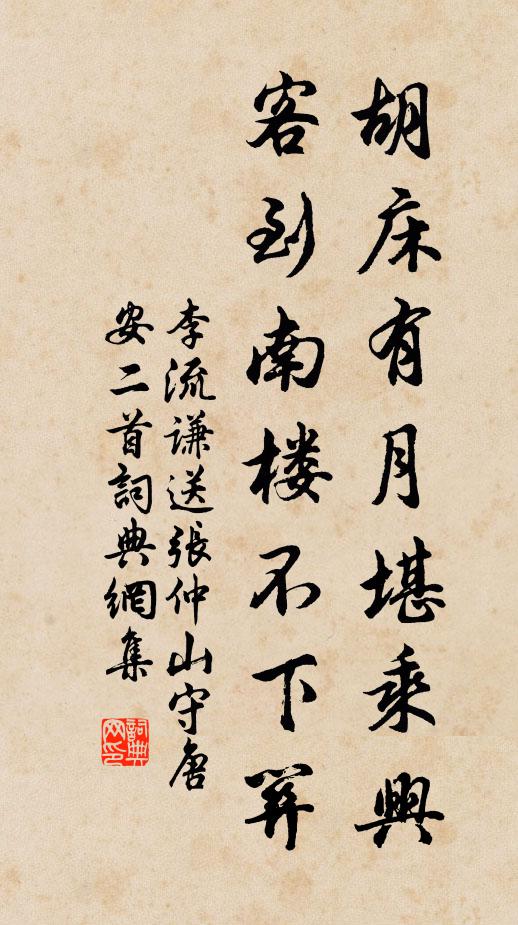 胡床有月堪乘興
客到南楼不下算
李流谦送張仲山守唐
安二首詞典網集
詞典網印